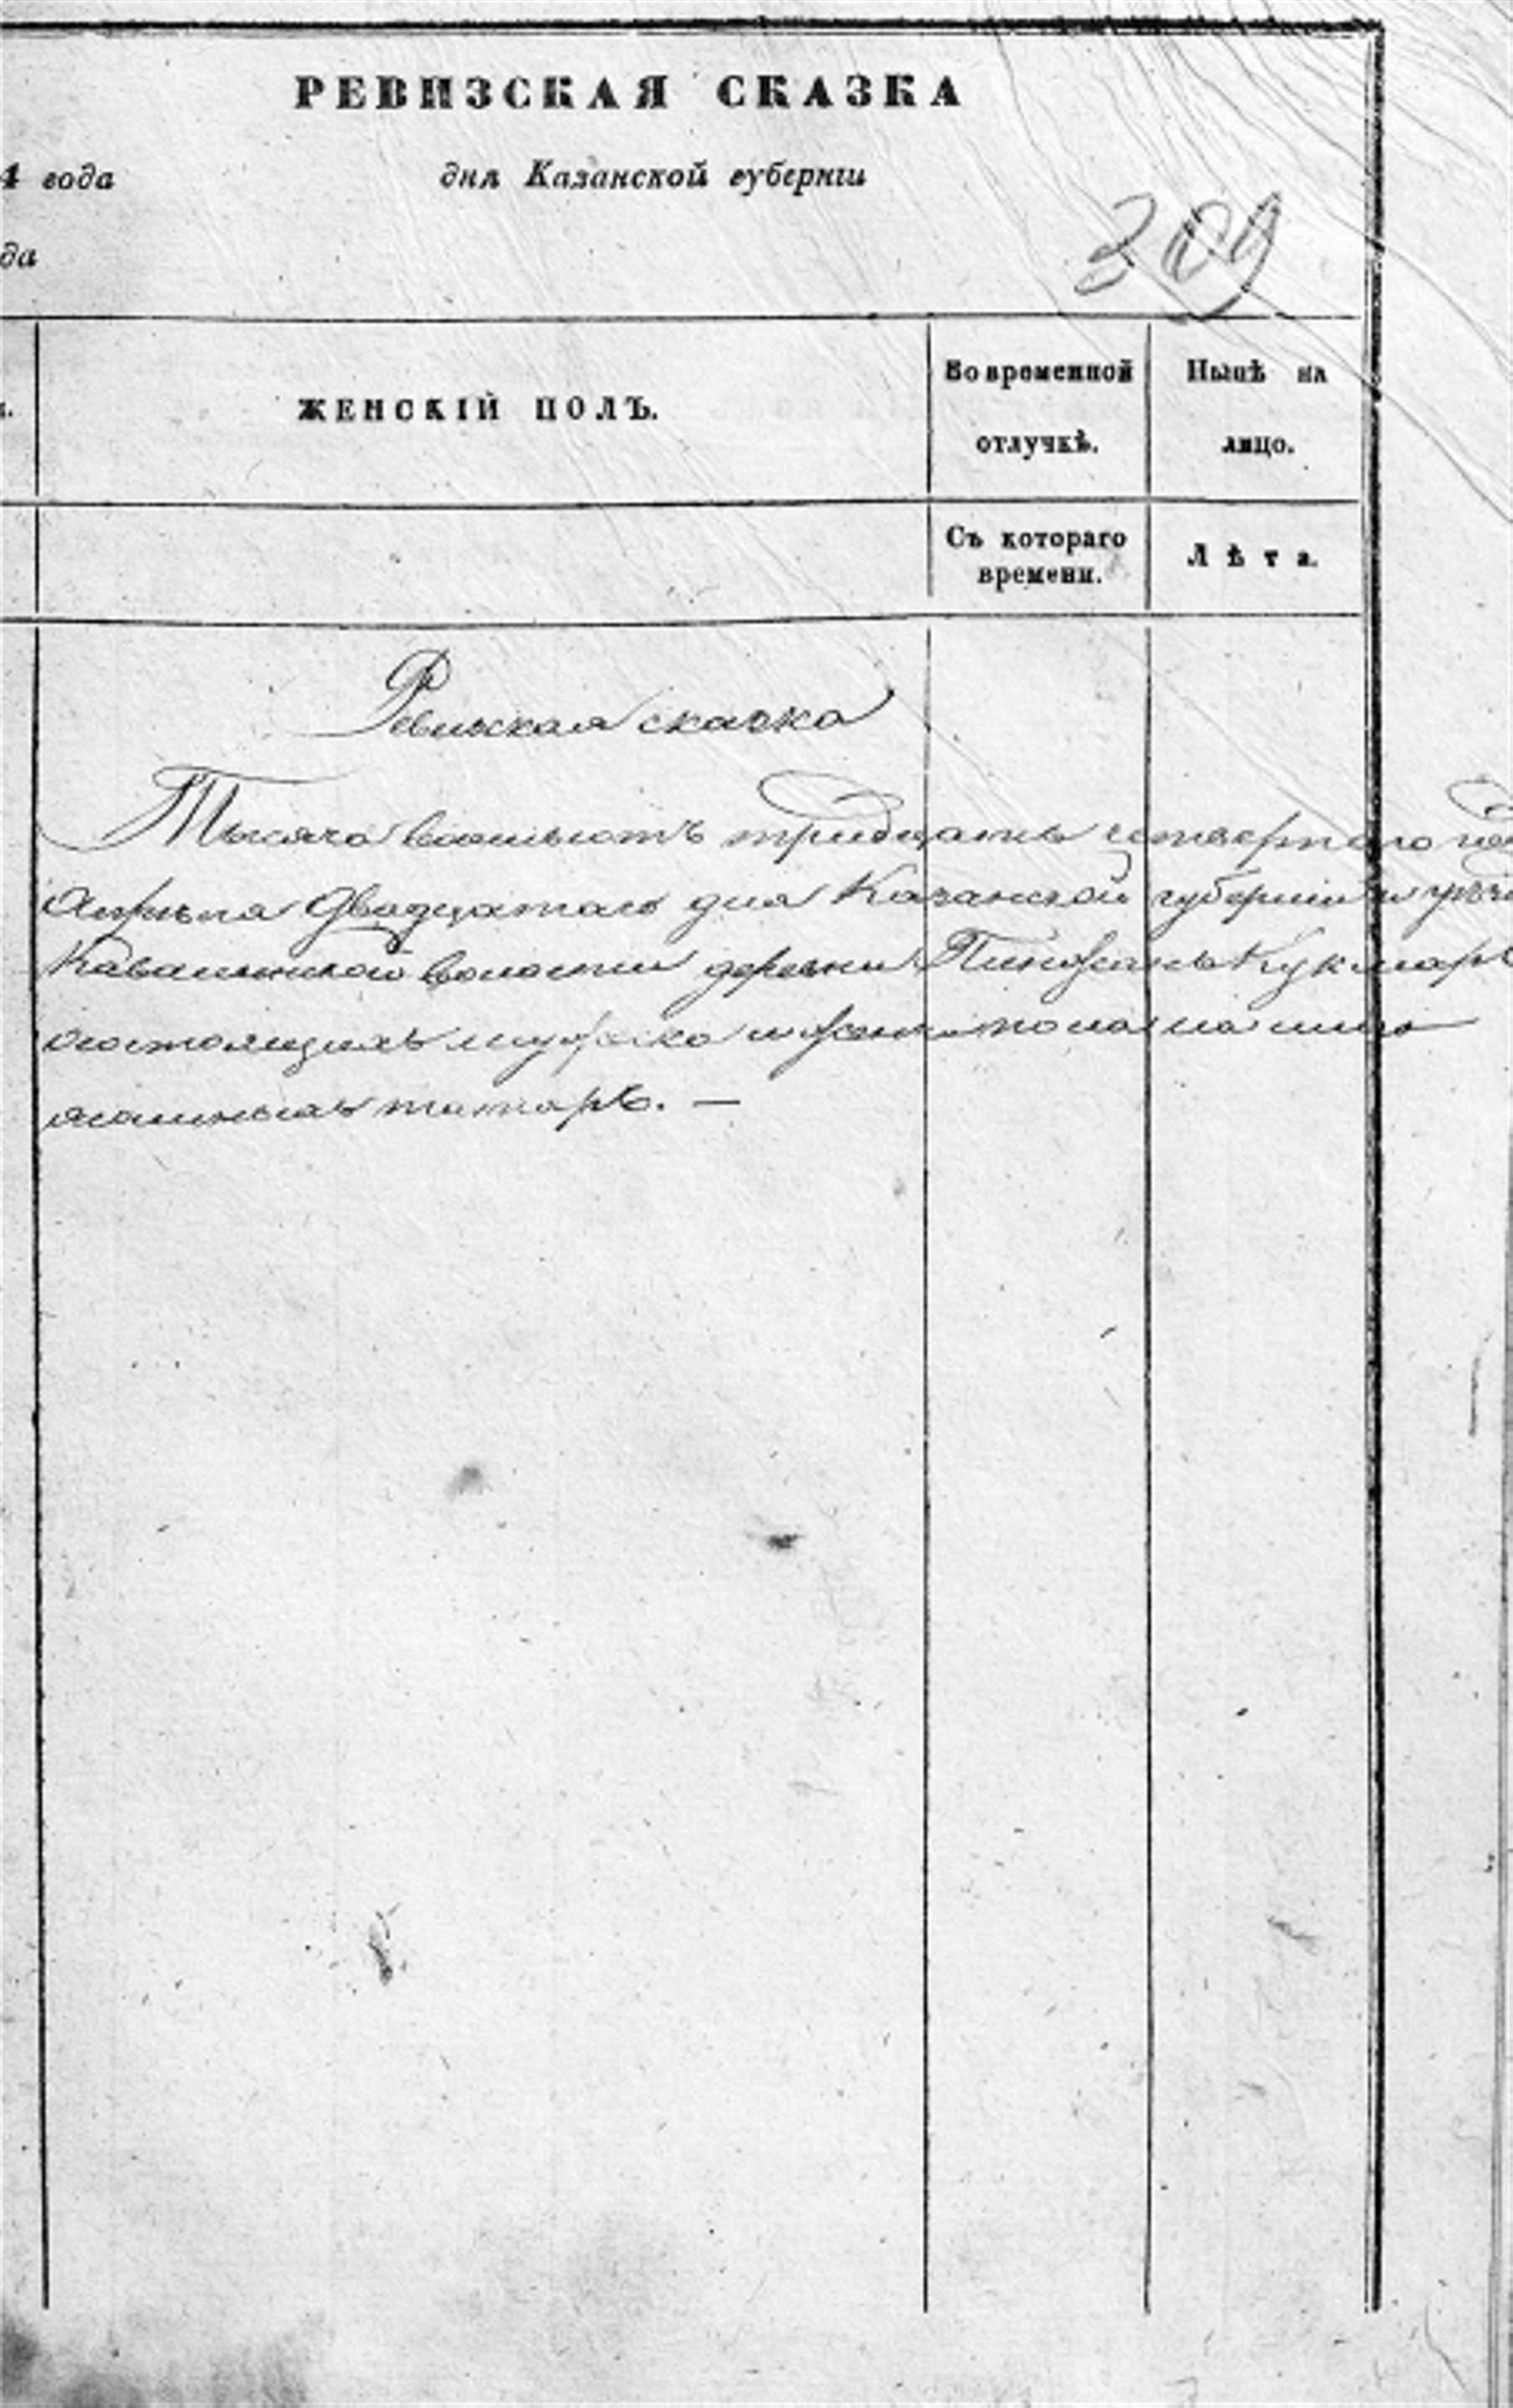 РЕВИЗСКАЯ СКАЗКА
4 года дня Казанской губернiи
да
309
ЖЕНСКIЙ ПОЛЪ.
Во временной
отлучкѣ.
Нынѣ на
лицо.
Съ котораго
времени.
Лѣта.
Ревизская сказка
Тысяча восемьсотъ тридцать четвертого
Апреля двадцатаго дня Казанской губернiи и
волости деревни Кукмаръ
состоящихъ мужеска и женска пола на лицо
ясашныхъ татаръ. —